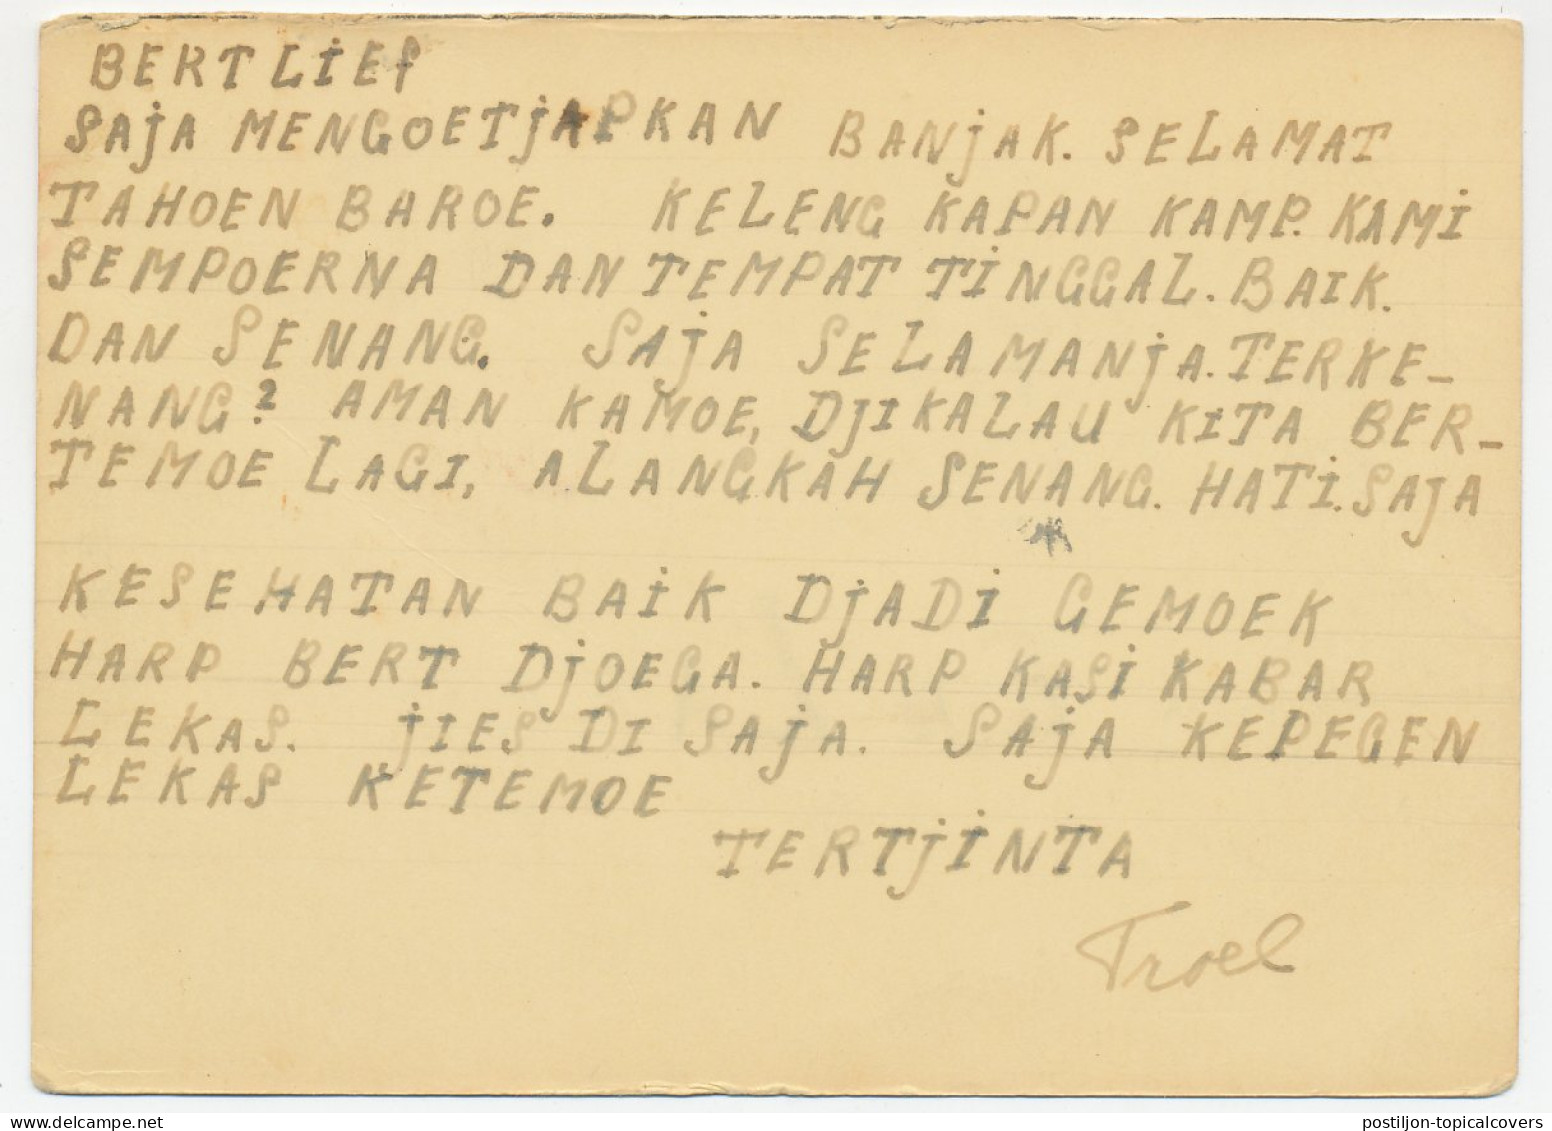 BERT LIEF
SAJA MENGOETJAPKAN BANJAK. SELAMAT
TAHOEN BAROE. KELENG KAPAN KAMP. KAMI
SEMPOERNA DAN TEMPAT TINGGAL. BAIK.
DAN SENANG. SAJA SELAMANJA. TERKE-
NANG2 AMAN KAMOE, DJIKALAU KITA BER-
TEMOE LAGI, ALANGKAH SENANG. HATI. SAJA
KESEHATAN BAIK DJADI GEMOEK
HARP BERT DJOEGA. HARP KASI KABAR
LEKAS. JIES DI SAJA. SAJA KEPEGEN
LEKAS KETEMOE
TERTJINTA
Troel
postiljon-topicalcovers